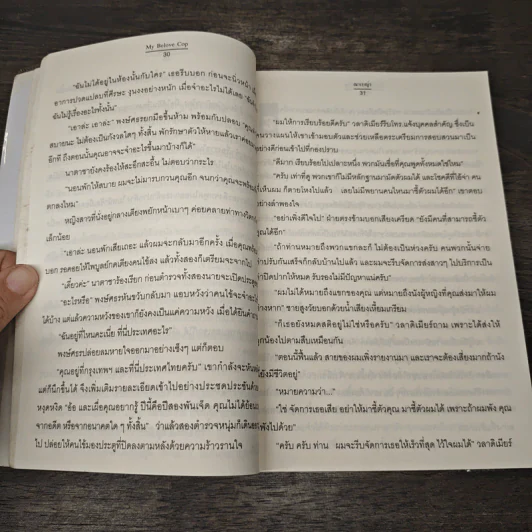 My Belove Cop
30
"ฉันไม่ได้อยู่ในห้องนั้นกับใคร" เธอรีบบอก ก่อนจะนิ่วหน้า
อาการปวดแปลบที่ศีรษะ งุนงงอย่างหนัก เมื่อจำอะไรไม่ได้เลย
ฉันไม่รู้เรื่องอะไรทั้งนั้น"
"เอาล่ะ เอาล่ะ" พงษ์ศรยกมือขึ้นห้าม พร้อมกับปลอบ
สบายนะ ไม่ต้องเป็นกังวลใดๆ ทั้งสิ้น พักรักษาตัวให้หายแล้วเราค่อย
อีกที ถึงตอนนั้นคุณอาจจะจำอะไรขึ้นมาบ้างก็ได้"
นาตาชายังคงร้องไห้สะอึกสะอื้น ไม่ตอบว่ากระไร
"นอนพักให้สบาย ผมจะไม่มารบกวนคุณอีก จนกว่าคุณจะพร้อม
ตกลงไหม"
หญิงสาวที่นั่งอยู่กลางเตียงพยักหน้าเบาๆ ค่อยคลายท่าทางวิตก
เล็กน้อย
"เอาล่ะ นอนพักเสียเถอะ แล้วผมจะกลับมาอีกครั้ง เมื่อคุณ
"เดี๋ยวค่ะ" นาตาชาร้องเรียก ก่อนตำรวจทั้งสองนายจะเปิดประตู
"อะไรหรือ" พงษ์ศรหันขวับกลับมา แอบหวังว่าคนไข้จะจำอะไร
ได้บ้าง แต่แล้วความหวังของเขาก็ยังคงเป็นแค่ความหวัง เมื่อได้ยิน
"ฉันอยู่ที่ไหนคะเนี่ย ที่นี่ประเทศอะไร"
พงษ์ศรปล่อยลมหายใจออกมาอย่างเซ็งๆ แต่ก็ตอบ
"คุณอยู่ที่กรุงเทพฯ และที่นี่ประเทศไทยครับ" เขากำลังจะหัน
แต่ก็นึกขึ้นได้ จึงเพิ่มเติมรายละเอียดเข้าไปอย่างประชดประชัน
หงุดหงิด "อ้อ และเผื่อคุณอยากรู้ ปีนี้คือปีสองพันเจ็ด คุณไม่ได้ย้อน
จากอดีต หรือจากอนาคตใด ๆ ทั้งสิ้น" ว่าแล้วสองตำรวจหนุ่มก็เดิน
ไป ปล่อยให้คนไข้มองประตูที่ปิดลงตามหลังด้วยความร้าวรานใจ
31
"ผมให้การเรียบร้อยดีครับ" วลาดิเมียร์รีบโทร.แจ้งบุคคลสำคัญ ซึ่งเป็น
คนวางแผนให้เขาเข้ามอบตัวและช่วยเหลือตระเตรียมการสอบสวนมาเป็น
อย่างดีก่อนเข้าไปที่กองปราบ
"ดีมาก เรียบร้อยไปเปลาะหนึ่ง พวกมันเชื่อที่คุณพูดทั้งหมดใช่ไหม"
"ครับ เท่าที่ดู พวกเขาก็ไม่มีหลักฐานมามัดตัวผมได้ และโชคดีที่ไอ้จ่า คน
ที่เห็นผม ก็ตายโหงไปแล้ว เลยไม่มีพยานคนไหนมาชี้ตัวผมได้อีก" เขาตอบ
อย่างลำพองใจ
"อย่าเพิ่งดีใจไป" ฝ่ายตรงข้ามบอกเสียงเครียด "ยังมีคนที่สามารถชี้ตัว
คุณได้อีก"
"ถ้าท่านหมายถึงพวกแขกละก็ ไม่ต้องเป็นห่วงครับ คนพวกนั้นจ่าย
ค่าปรับกันเสร็จก็กลับบ้านไปแล้ว และผมจะรีบจัดการส่งสาวๆ ไปบริการเป็น
ค่าปิดปากให้หมด รับรองไม่มีปัญหาแน่ครับ"
"ผมไม่ได้หมายถึงแขกของคุณ แต่หมายถึงนังผู้หญิงที่คุณส่งมาให้ผม
ต่างหาก" ชายสูงวัยบอกด้วยน้ำเสียงเหี้ยมเกรียม
"ก็เธอยังหมดสติอยู่ไม่ใช่หรือครับ" วลาดิเมียร์ถาม เพราะได้ส่งให้
ลูกน้องไปตามสืบเหมือนกัน
"ตอนนี้ฟื้นแล้ว สายของผมเพิ่งรายงานมา และเราจะต้องเสี่ยงมากถ้านัง
ยังมีชีวิตอยู่"
"หมายความว่า..."
"ใช่ จัดการเธอเสีย อย่าให้มาชี้ตัวคุณ มาชี้ตัวผมได้ เพราะถ้าผมพัง คุณ
ก็พังไปด้วย"
"ครับ ครับ ท่าน ผมจะรีบจัดการเธอให้เร็วที่สุด ไว้ใจผมได้" วลาดิเมียร์